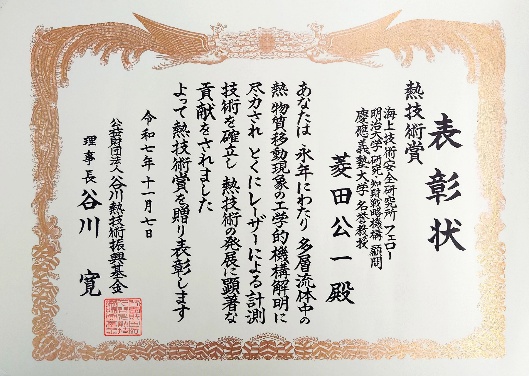 表彰状
熱技術賞
海上技術安全研究所 フェロー
明治大学 研究・知財戦略機構 顧問
慶應義塾大学 名誉教授
菱田公一殿
あなたは 永年にわたり 多層流体中の
熱 物質移動現象の工学的機構解明に
尽力され とくにレーザーによる計測
技術を確立し 熱技術の発展に顕著な
貢献をされました
よって熱技術賞を贈り表彰します
令和七年十一月七日
公益財団法人谷川熱技術振興基金
理事長 谷川 寛